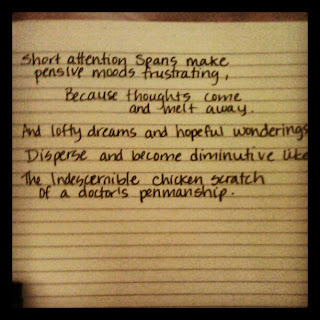 Short attention Spans make
pensive moods frustrating,
Because thoughts come
and melt away.
And lofty dreams and hopeful wonderings
Disperse and become diminutive like
The Indescernible chicken scratch
of a doctor's penmanship.